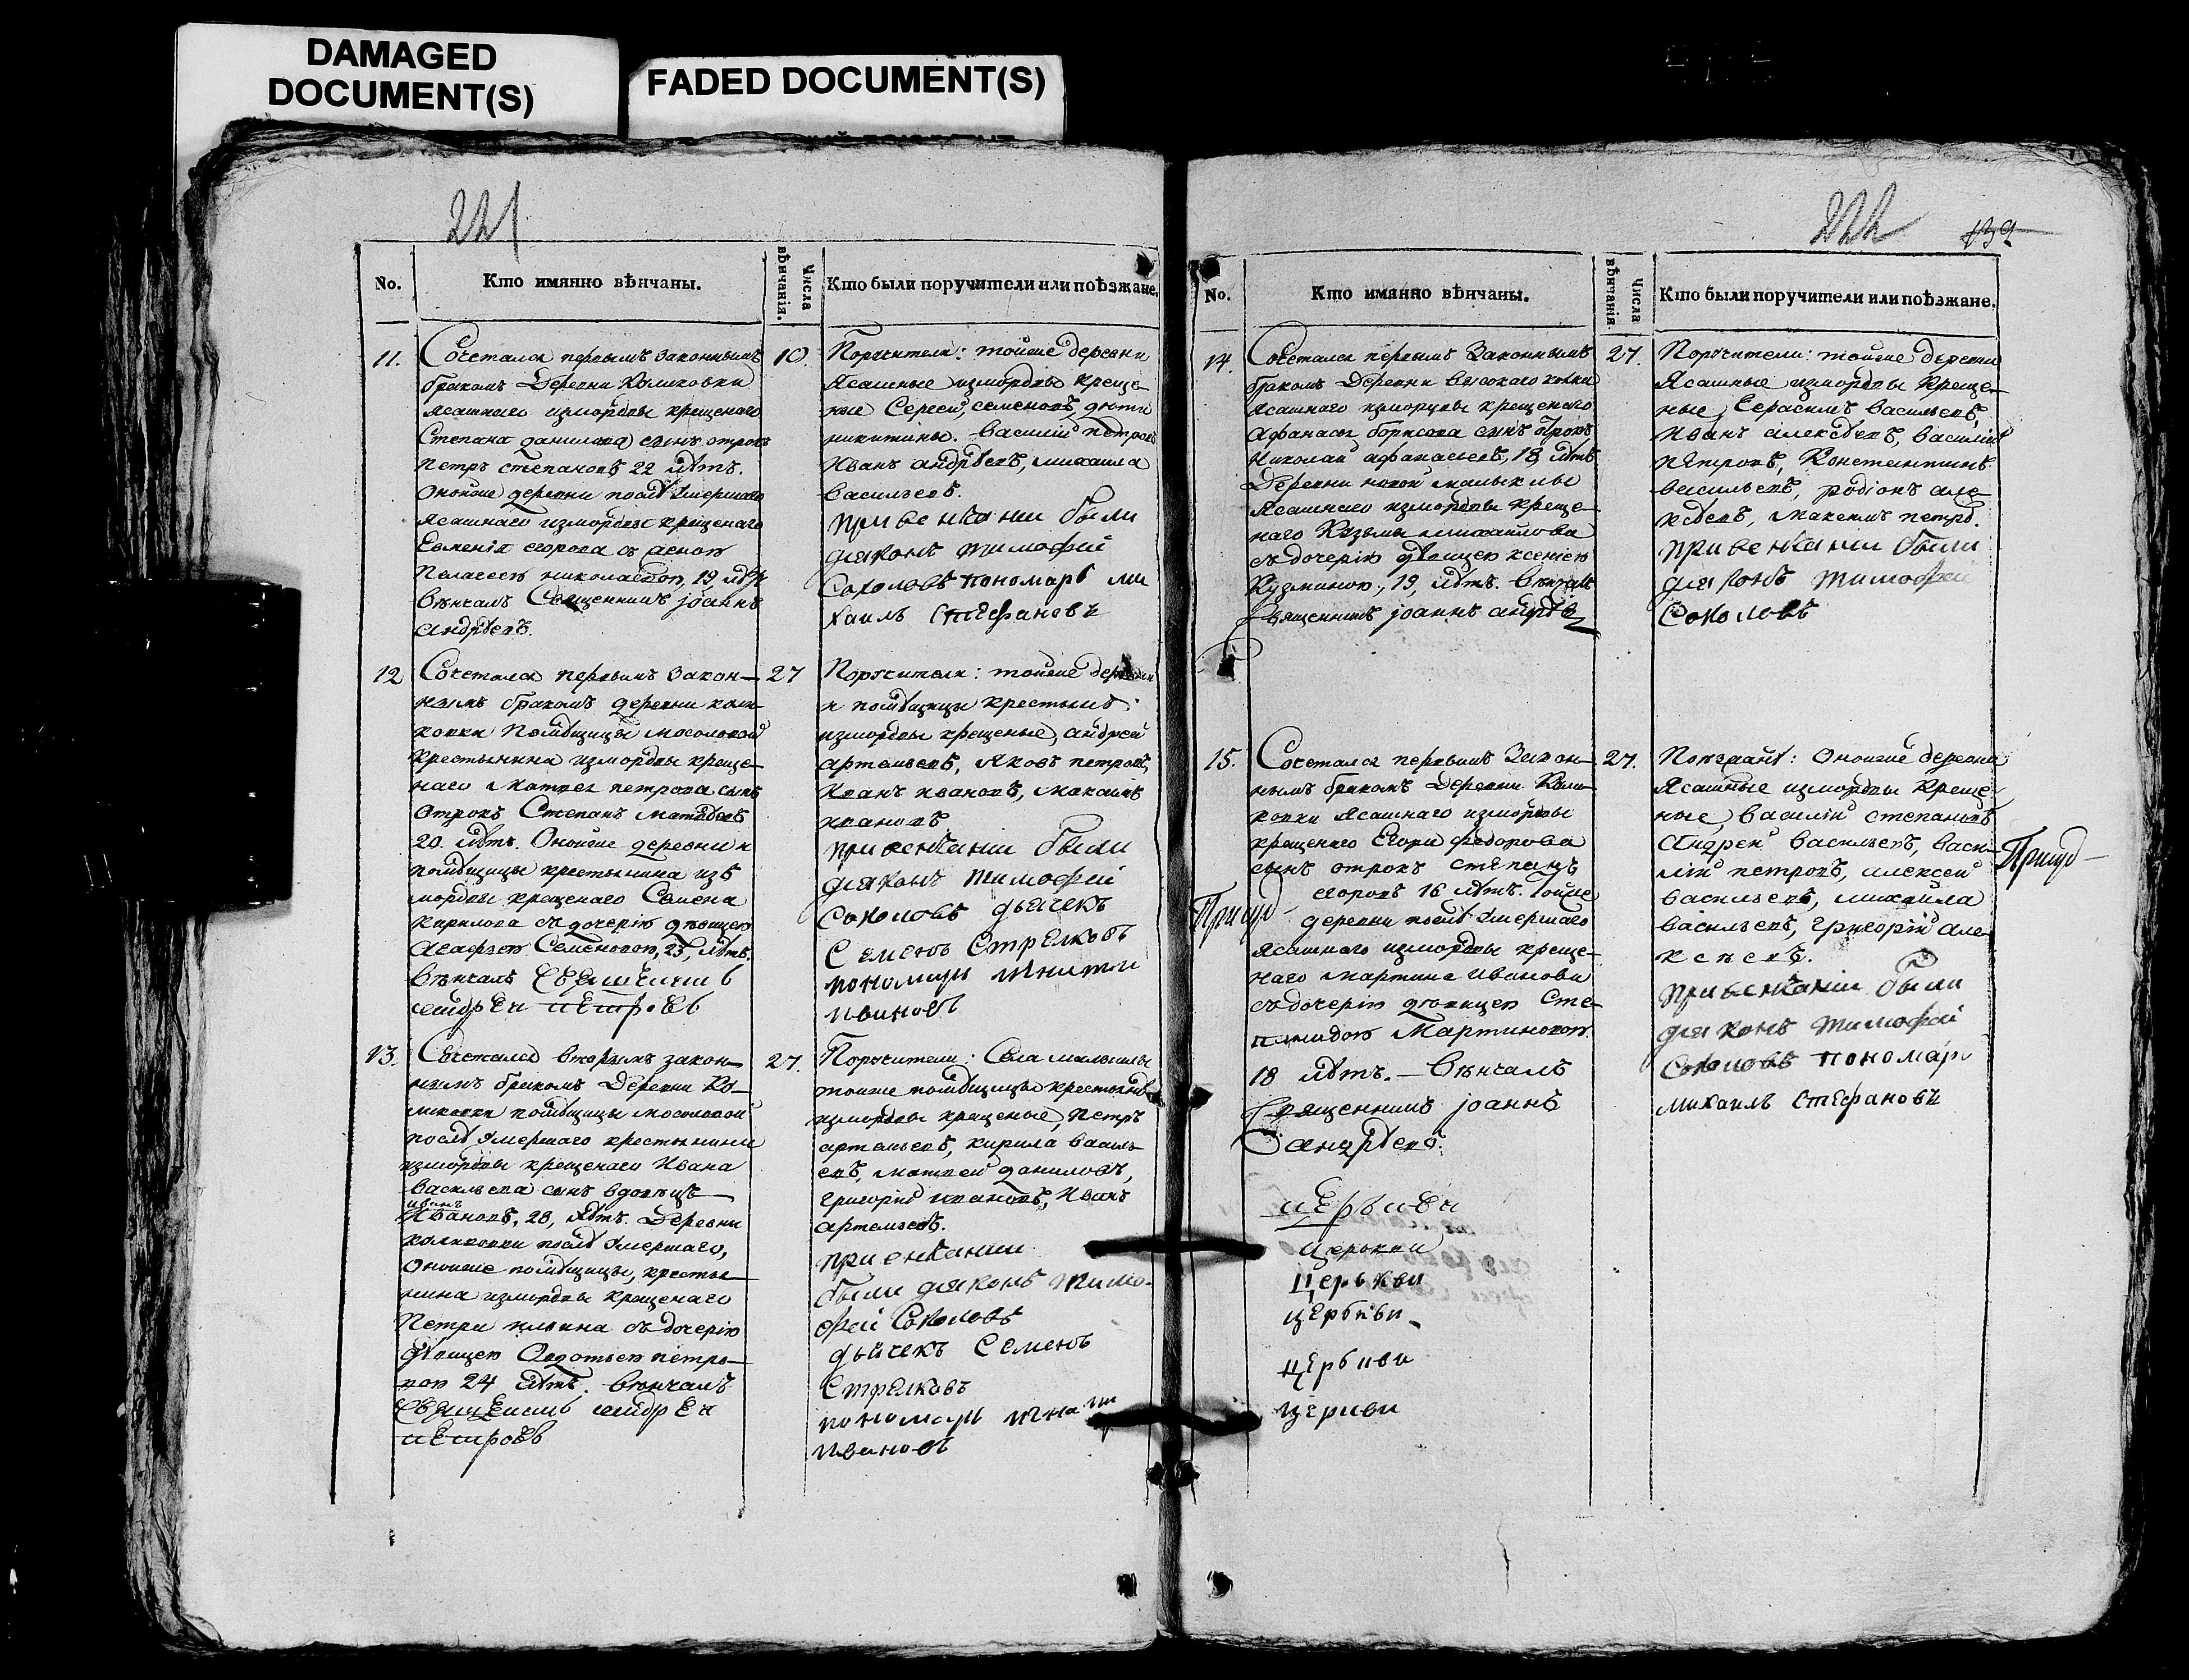 DAMAGED
DOCUMENT(S)
FADED DOCUMENT(S)
221
No.
Кто имянно вѣнчаны.
Числа
вѣнчанія.
Кто были поручители или поѣзжане.
11.
Сочетался первымъ законнымъ
бракомъ деревни Коликовки
ясашнаго измордвы крещенаго
Степана данилова сынъ отрокъ
Петръ степановъ 22 лѣтъ.
Оноиже деревни послѣ Умершаго
Ясашнаго измордвы крещенаго
Евменія егорова съ
Пелагеею николаевою, 19 лѣтъ
Вѣнчалъ Священникъ Іоаннъ
Андрѣевъ.
10.
Поручители: тойже деревни
Ясашные измордвы креще-
ные Сергей, семеновъ, дѣти
никитины. Василій петровъ
Иванъ андрѣевъ, михаила
Васильевъ.
при венчании были
диаконъ тимофей
Соколовъ пономарь ми
хаилъ Стефановъ
12
Сочетался первымъ закон-
нымъ бракомъ деревни коли-
ковки Помѣщицы мосоловой
Крестьянина измордвы креще-
наго Матвея петрова сынъ
отрокъ Степанъ матвѣевъ
20. лѣтъ. Онойже деревни и
помѣщицы крестьянина изъ
мордвы крещенаго Семена
Кирилова съ дочерію дѣвицею
Агафьею Семеновою, 23, лѣтъ.
Вѣнчалъ Священникъ
андрей петровъ
27
Поручители: тойже деревни
и помѣщицы крестьянѣ
измордвы крещеные, андрей
артемьевъ, Яковъ петровъ,
Иванъ ивановъ, максимъ
ивановъ
при венчании были
диаконъ тимофей
Соколовъ дьячекъ
Семенъ Стрелковъ
пономарь
ивановъ
13.
Сочетался вторымъ закон-
нымъ бракомъ деревни Ко-
ликовки помѣщицы мосоловой
послѣ Умершаго крестьянина
измордвы крещенаго Ивана
Васильева сынъ вдовецъ
Ивановъ, 28, лѣтъ. Деревни
коликовки послѣ Умершаго,
оноиже помѣщицы, крестья-
нина измордвы крещенаго
Петра ильина съ дочерію
дѣвицею Авдотьею петро-
вою 24 лѣтъ. Вѣнчалъ
Священникъ андрей
петровъ
27.
Поручители: Села малыклы
тойже помѣщицы крестьянѣ
измордвы крещеные, Петръ
артемьевъ, кирила василь
евъ, матвей даниловъ,
григорій ивановъ, Иванъ
артемьевъ.
при венчании
были диаконъ тимо-
фей Соколовъ
дьячекъ Семенъ
Стрелковъ
пономарь
ивановъ
222
139
No.
Кто имянно вѣнчаны.
Числа
вѣнчанія
Кто были поручители или поѣзжане.
14.
Сочетался первымъ Законнымъ
бракомъ деревни высокаго колка
Ясашнаго измордвы крещенаго
Афанасья борисова сынъ отрокъ
Николай афанасьевъ, 18, лѣтъ
Деревни новой малыклы
Ясашнаго измордвы креще-
наго Кузьмы михайлова
съ дочерію дѣвицею ксеніею
Кузминою, 19, лѣтъ. Вѣнчалъ
Священникъ Іоаннъ андрѣевъ
27.
Поручители: тойже деревни
Ясашные измордвы Креще-
ные, Герасимъ васильевъ,
Иванъ алексѣевъ, василій
петровъ, Константинъ
васильевъ, родіонъ але-
ксѣевъ, максимъ петро.
при венчании были
диаконъ тимофей
Соколовъ
15.
Сочетался первымъ Закон-
нымъ бракомъ деревни Коли-
ковки Ясашнаго измордвы
крещенаго Егора федорова
сынъ отрокъ степанъ
егоровъ 16 лѣтъ. Тойже
деревни послѣ Умершаго
Ясашнаго измордвы креще-
наго мартина иванова
съ дочерію дѣвицею Сте-
панидою Мартиновою
18 лѣтъ. — Вѣнчалъ
Священникъ Іоаннъ
Андрѣевъ.
27.
Оноиже деревни
Ясашные измордвы Креще-
ные, василій степановъ
Андрей васильевъ, васи-
лій петровъ, алексей
васильевъ, михаила
васильевъ, григорій але-
ксеевъ.
при венчании были
диаконъ тимофей
Соколовъ пономарь
михаилъ Стефановъ
церькви
церькви
церькви